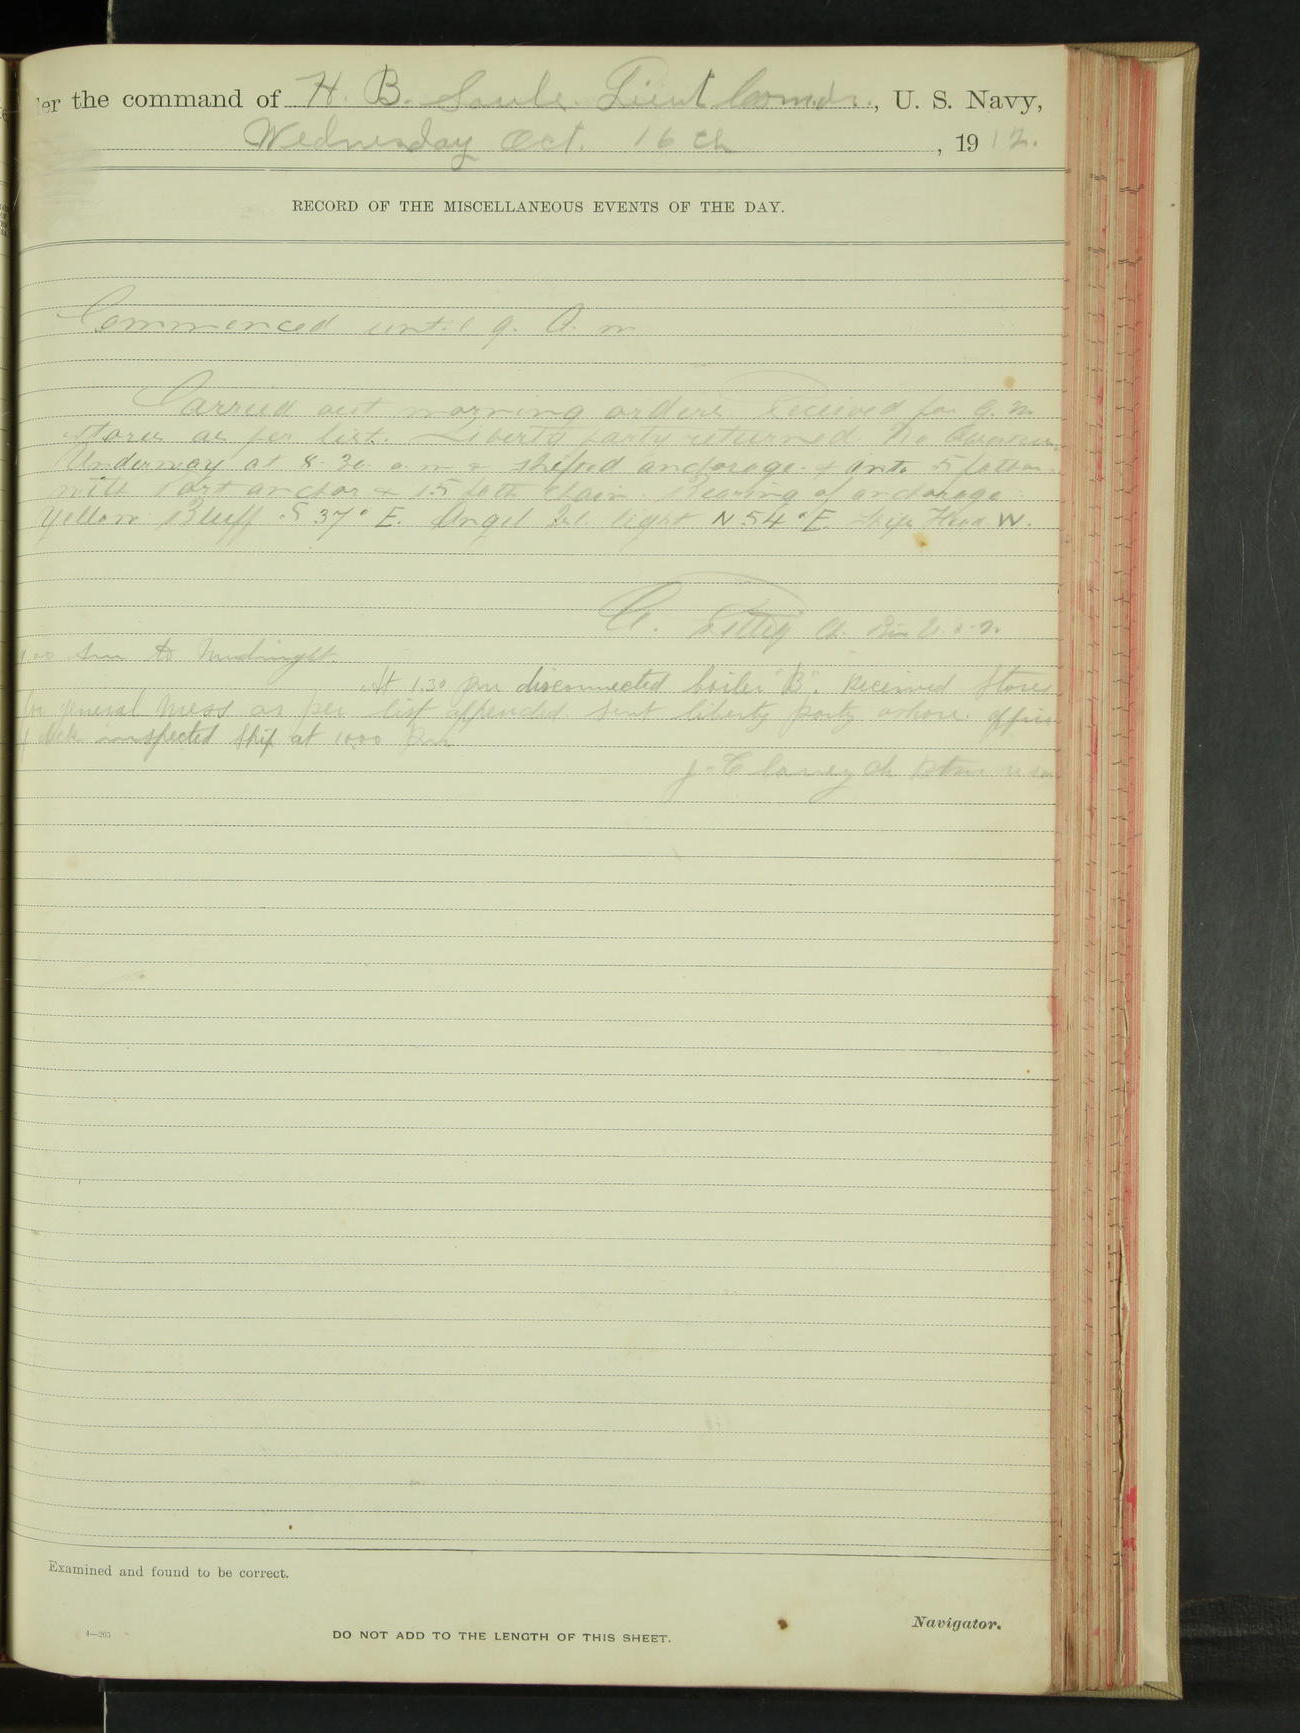 er the command of H. B. Soule Lieut Comdr., U. S. Navy,
Wednesday Oct. 16th, 1912.
RECORD OF THE MISCELLANEOUS EVENTS OF THE DAY.
Commenced until 9. A. m
Carried out morning orders Received for G. M.
stores as per list. Liberty party returned. No
Underway at 8-30 a m & shifted anchorage. & 5 fathom
with Port anchor & 15 fath chain. Bearing of anchorage
Yellow Bluff S 37° E. Angel Isl. light N 54° E Ships Head W.
to Midnight.
At 1.30 pm disconnected boiler "B". Received Stores
for general mess as per list appended sent liberty party ashore. officer
inspected ship at 10.00 Pm
Examined and found to be correct.
Navigator.
4—263
DO NOT ADD TO THE LENGTH OF THIS SHEET.